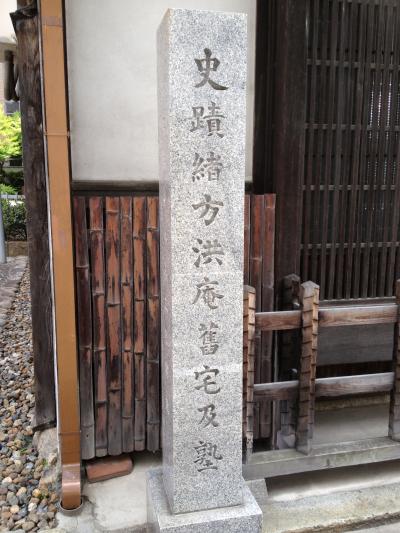 史蹟緒方洪庵舊宅及塾